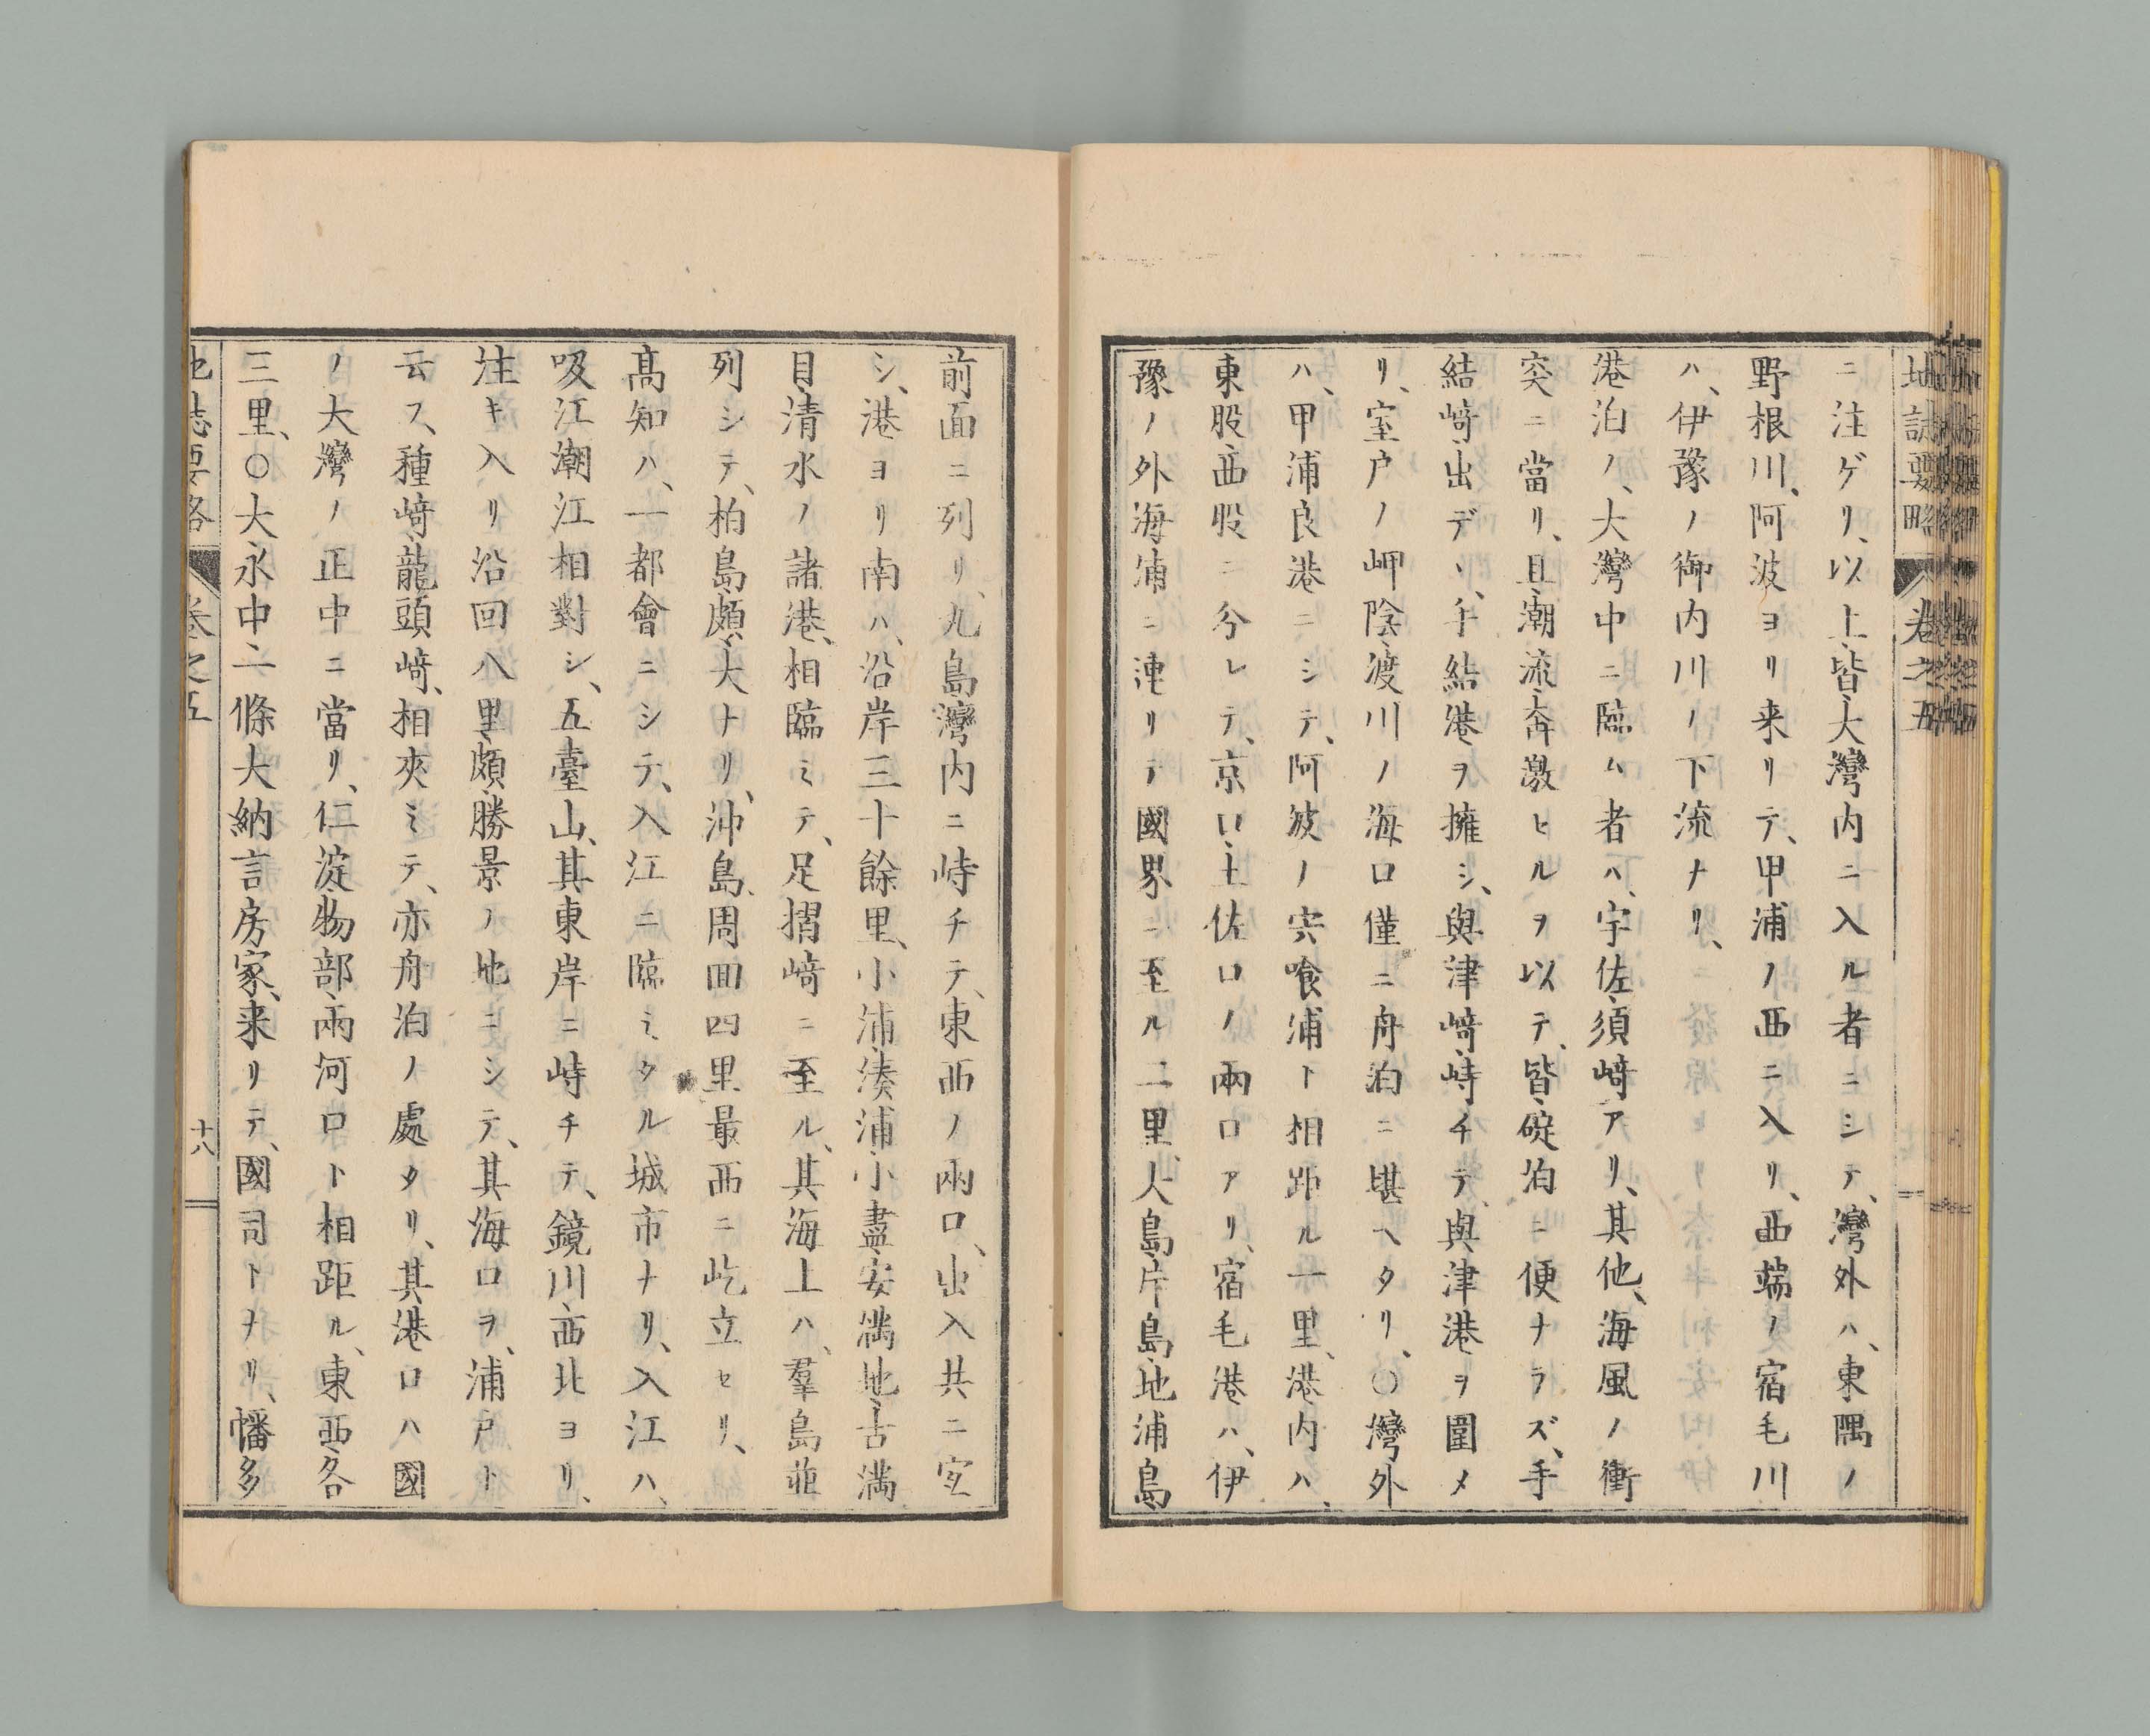 地誌要略 卷之五
ニ注ゲリ、以上皆大灣内ニ入ル者ニシテ、灣外ハ、東隅ノ
野根川、阿波ヨリ来リテ、甲浦ノ西ニ入リ、西端ノ宿毛川
ハ、伊豫ノ御内川ノ下流ナリ、
港泊ノ、大灣中ニ臨ム者ハ、宇佐、須﨑アリ、其他、海風ノ衝
突ニ當リ、且潮流奔激ヒルヲ以テ、皆碇泊ニ便ナラズ、手
結﨑出デヽ、手結港ヲ擁シ、與津﨑峙チテ、與津港ヲ圍メ
リ、室戸ノ岬陰、渡川ノ海口僅ニ舟泊ニ堪ヘタリ、〇灣外
ハ、甲浦良港ニシテ、阿波ノ宍喰浦ト相距ル一里、港内ハ、
東股、西股ニ分レテ、京口、土佐口ノ兩口アリ、宿毛港ハ、伊
豫ノ外海浦ニ連リテ國界ニ至ル二里、大島、片島、地浦島
前面ニ列リ、九島灣内ニ峙チテ、東西ノ兩口、出入共ニ宜
シ、港ヨリ南ハ、沿岸三十餘里、小浦湊浦、小盡、安滿地、古滿
目、清水ノ諸港、相臨ミテ、足摺﨑ニ至ル、其海上ハ、羣島並
列シテ、柏島、頗大ナリ、沖島、周回四里最西ニ屹立セリ、
高知ハ、一都會ニシテ、入江ニ臨ミタル城市ナリ、入江ハ、
吸江潮江相對シ、五臺山、其東岸ニ峙チテ、鏡川、西北ヨリ、
注キ入リ沿回八里、頗勝景ノ地ニシテ、其海口ヲ、浦戸ト
云フ、種﨑、龍頭﨑、相夾ミテ、亦舟泊ノ處タリ、其港口ハ國
ノ大灣ノ正中ニ當リ、仁淀、物部、兩河口ト相距ル、東西各
三里、〇大永中二條大納言房家、来リテ、國司トナリ、幡多
地誌要略 卷之五 十八